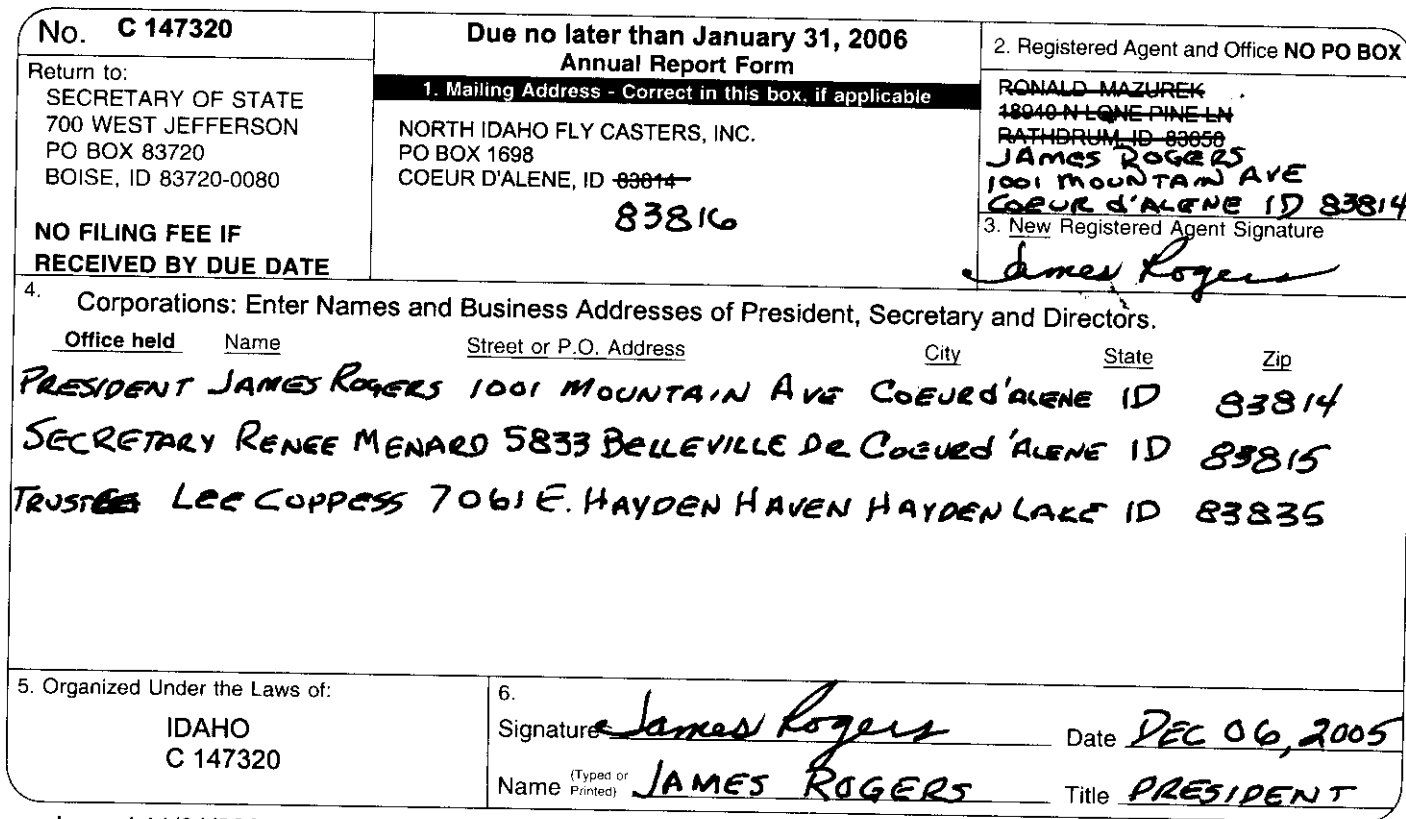 No. C 147320
Return to:
SECRETARY OF STATE
700 WEST JEFFERSON
PO BOX 83720
BOISE, ID 83720-0080
NO FILING FEE IF
RECEIVED BY DUE DATE
Due no later than January 31, 2006
Annual Report Form
1. Mailing Address - Correct in this box, if applicable
NORTH IDAHO FLY CASTERS, INC.
PO BOX 1698
COEUR D'ALENE, ID 83814
83816
2. Registered Agent and Office NO PO BOX
RONALD MAZUREK
18940 N LONE PINE LN
RATHDRUM, ID 83858
JAMES ROGERS
1001 MOUNTAIN AVE
COEUR d'ALENE ID 83814
3. New Registered Agent Signature
James Rogers
4. Corporations: Enter Names and Business Addresses of President, Secretary and Directors.
Office held Name Street or P.O. Address City State Zip
PRESIDENT JAMES ROGERS 1001 MOUNTAIN AVE COEUR d'ALENE ID 83814
SECRETARY RENEE MENARD 5833 BELLEVILLE DR COEUR d'ALENE ID 83815
TRUSTEE LEE COPPESS 7061 E. HAYDEN HAVEN HAYDEN LAKE ID 83835
5. Organized Under the Laws of:
IDAHO
C 147320
6.
Signature James Rogers Date DEC 06, 2005
Name (Typed or Printed) JAMES ROGERS Title PRESIDENT